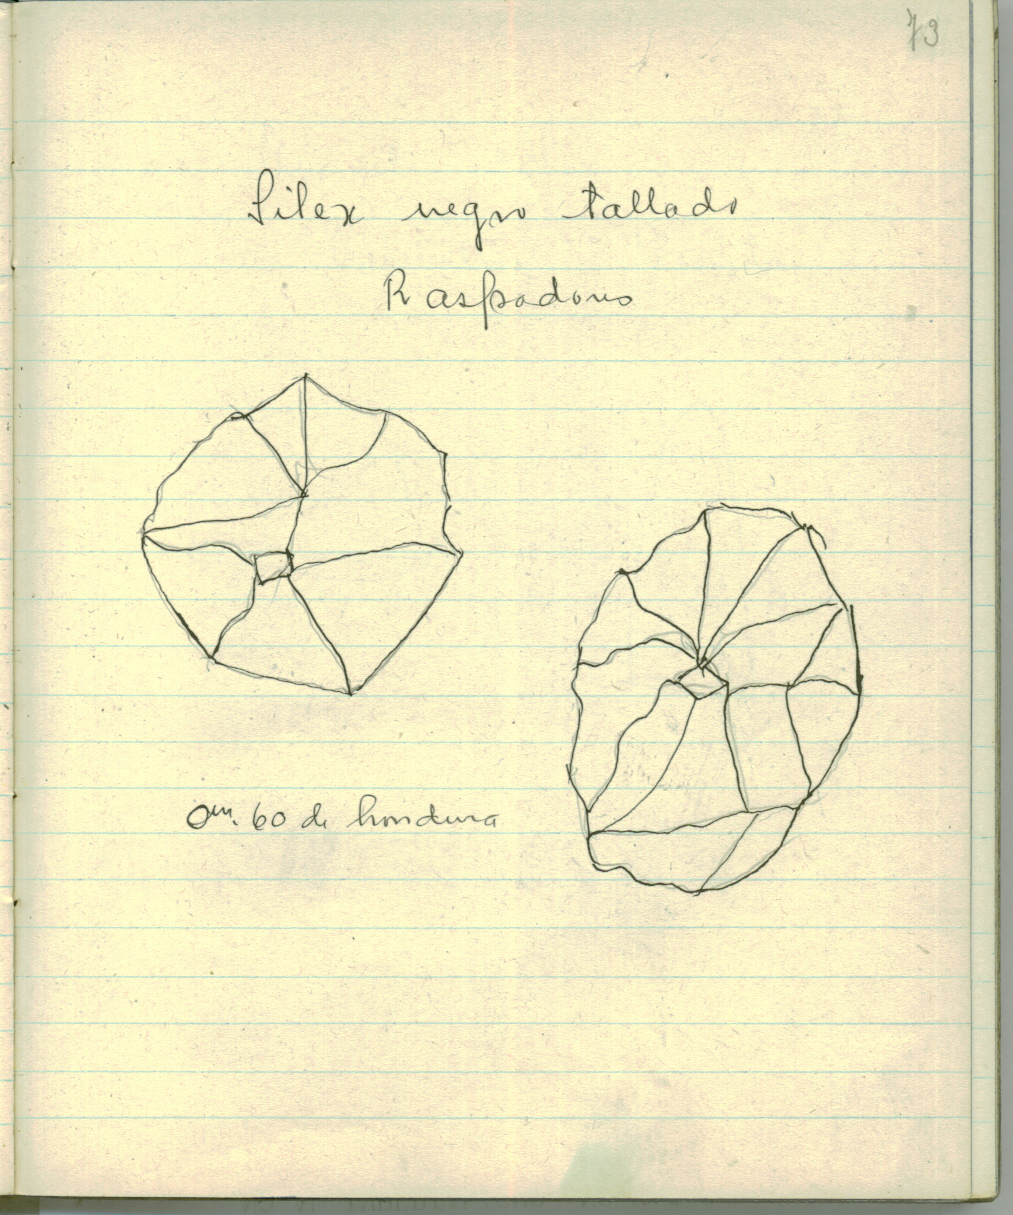 73
Silex negro tallado
Raspadores
0m. 60 de hondura